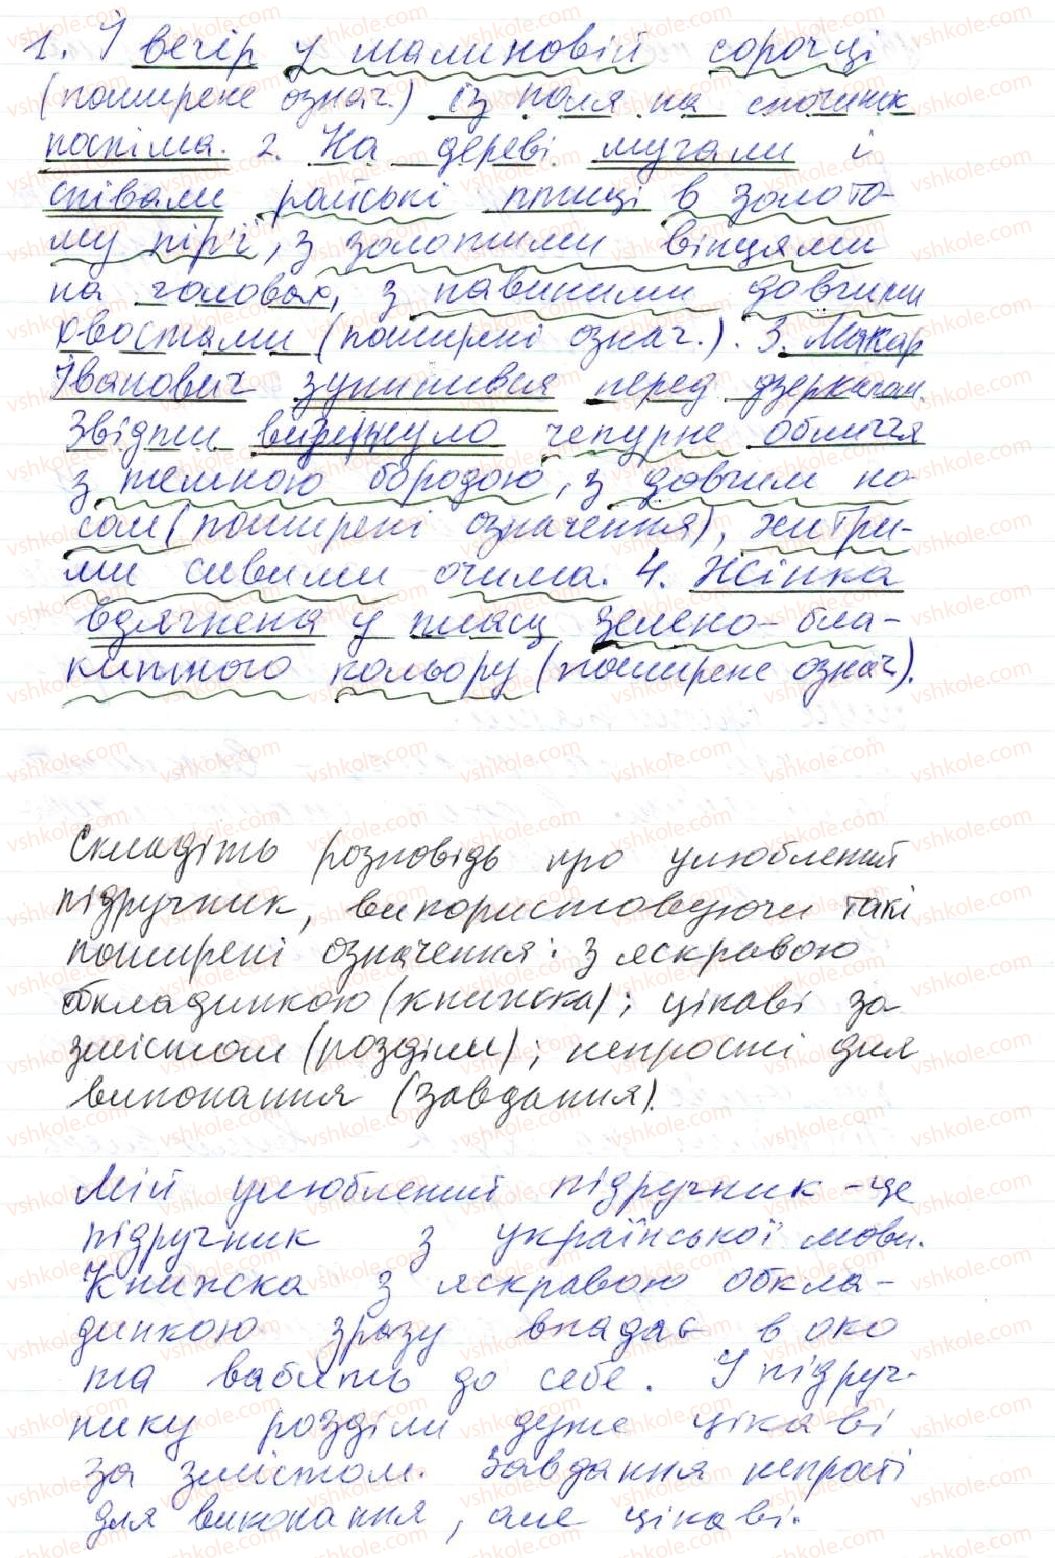 1. І вечір у малиновій сорочці
(поширене означ.) із поля на спочинок
поспіша. 2. На дереві мугали і
співали райські птиці в золото-
му пір'ї, з золотими вінцями
на головах, з павиними довгими
хвостами (поширені означ.). 3. Макар
Іванович зупинився перед дзеркалом.
Звідти визирнуло чепурне обличчя
з темною бородою, з довгим но-
сом (поширені означення), хитри-
ми сивими очима. 4. Жінка
вдягнена у плащ зелено-бла-
китного кольору (поширене означ).
Складіть розповідь про улюблений
підручник, використовуючи такі
поширені означення: з яскравою
обкладинкою (книжка); цікаві за
змістом (розділи); непрості для
виконання (завдання).
Мій улюблений підручник - це
підручник з української мови.
Книжка з яскравою обкла-
динкою зразу впадає в око
та вабить до себе. У підруч-
нику розділи дуже цікаві
за змістом. Завдання непрості
для виконання, але цікаві.